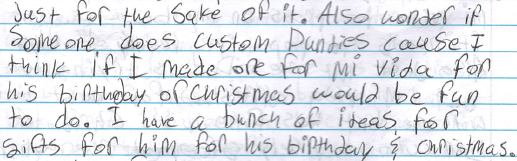 just for the sake of it. Also wonder if
someone does custom Dundies cause I
think if I made one for mi vida for
his birthday or Christmas would be fun
to do. I have a bunch of ideas for
gifts for him for his birthday & Christmas.